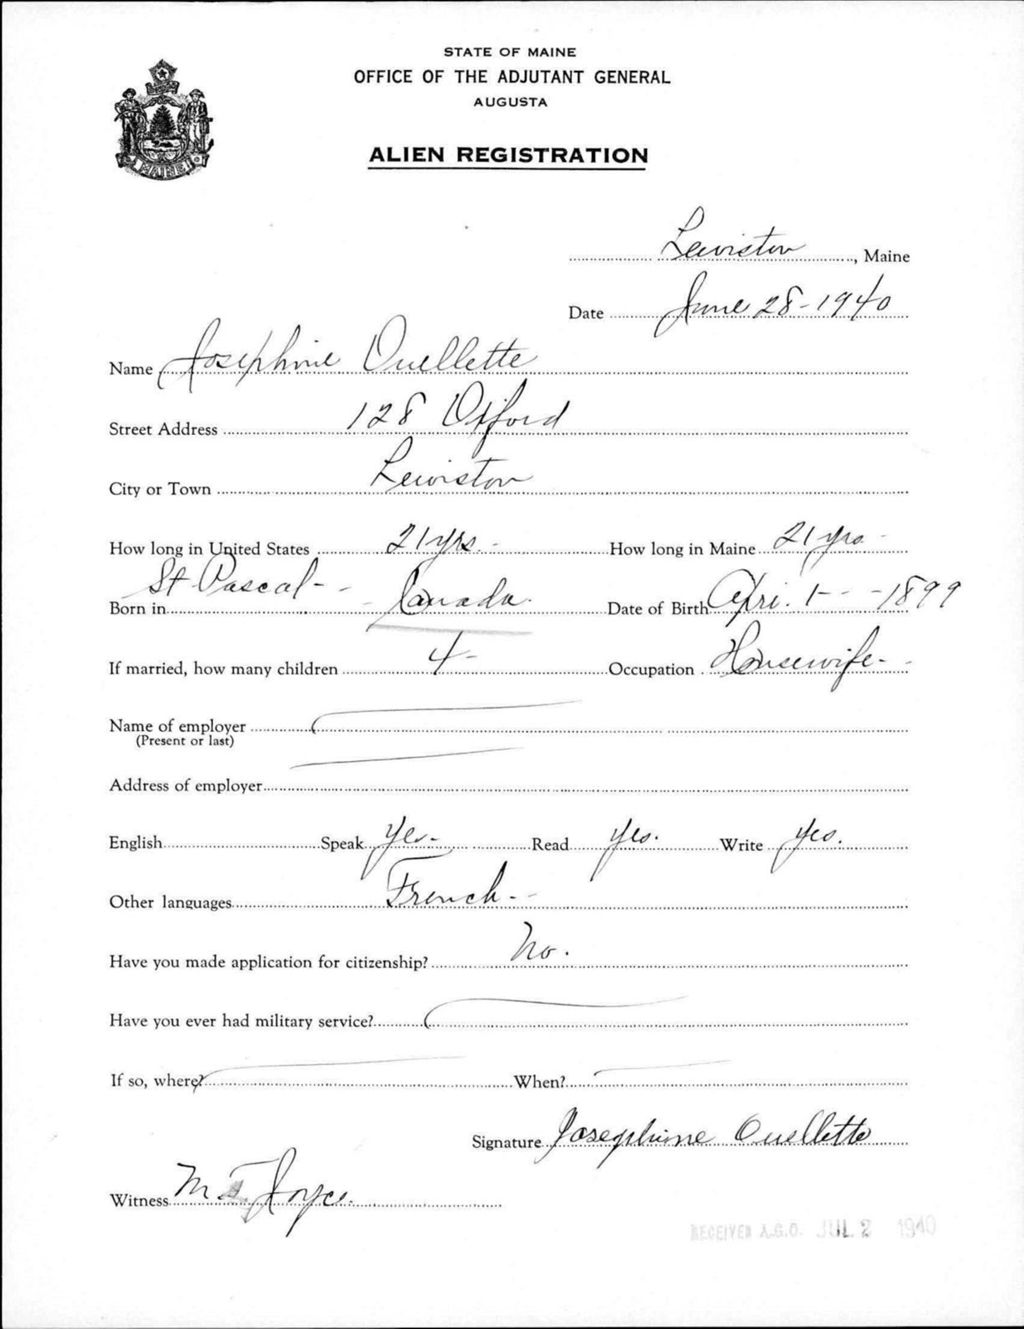 STATE OF MAINE
OFFICE OF THE ADJUTANT GENERAL
AUGUSTA
ALIEN REGISTRATION
MAINE
Lewiston, Maine
Date June 28-1940
Name Josephine Ouellette
Street Address 128 Oxford
City or Town Lewiston
How long in United States 21 yrs. - How long in Maine 21 yrs. -
Born in St. Pascal - - - Canada. Date of Birth Apri. 1 - - - 1899
If married, how many children 4 - Occupation Housewife. -
Name of employer
(Present or last)
Address of employer
English Speak Yes - Read Yes. Write Yes.
Other languages French - -
Have you made application for citizenship? No.
Have you ever had military service?
If so, where? When?
Signature Josephine Ouellette
Witness M Joyce.
RECEIVED A.G.O. JUL 2 1940